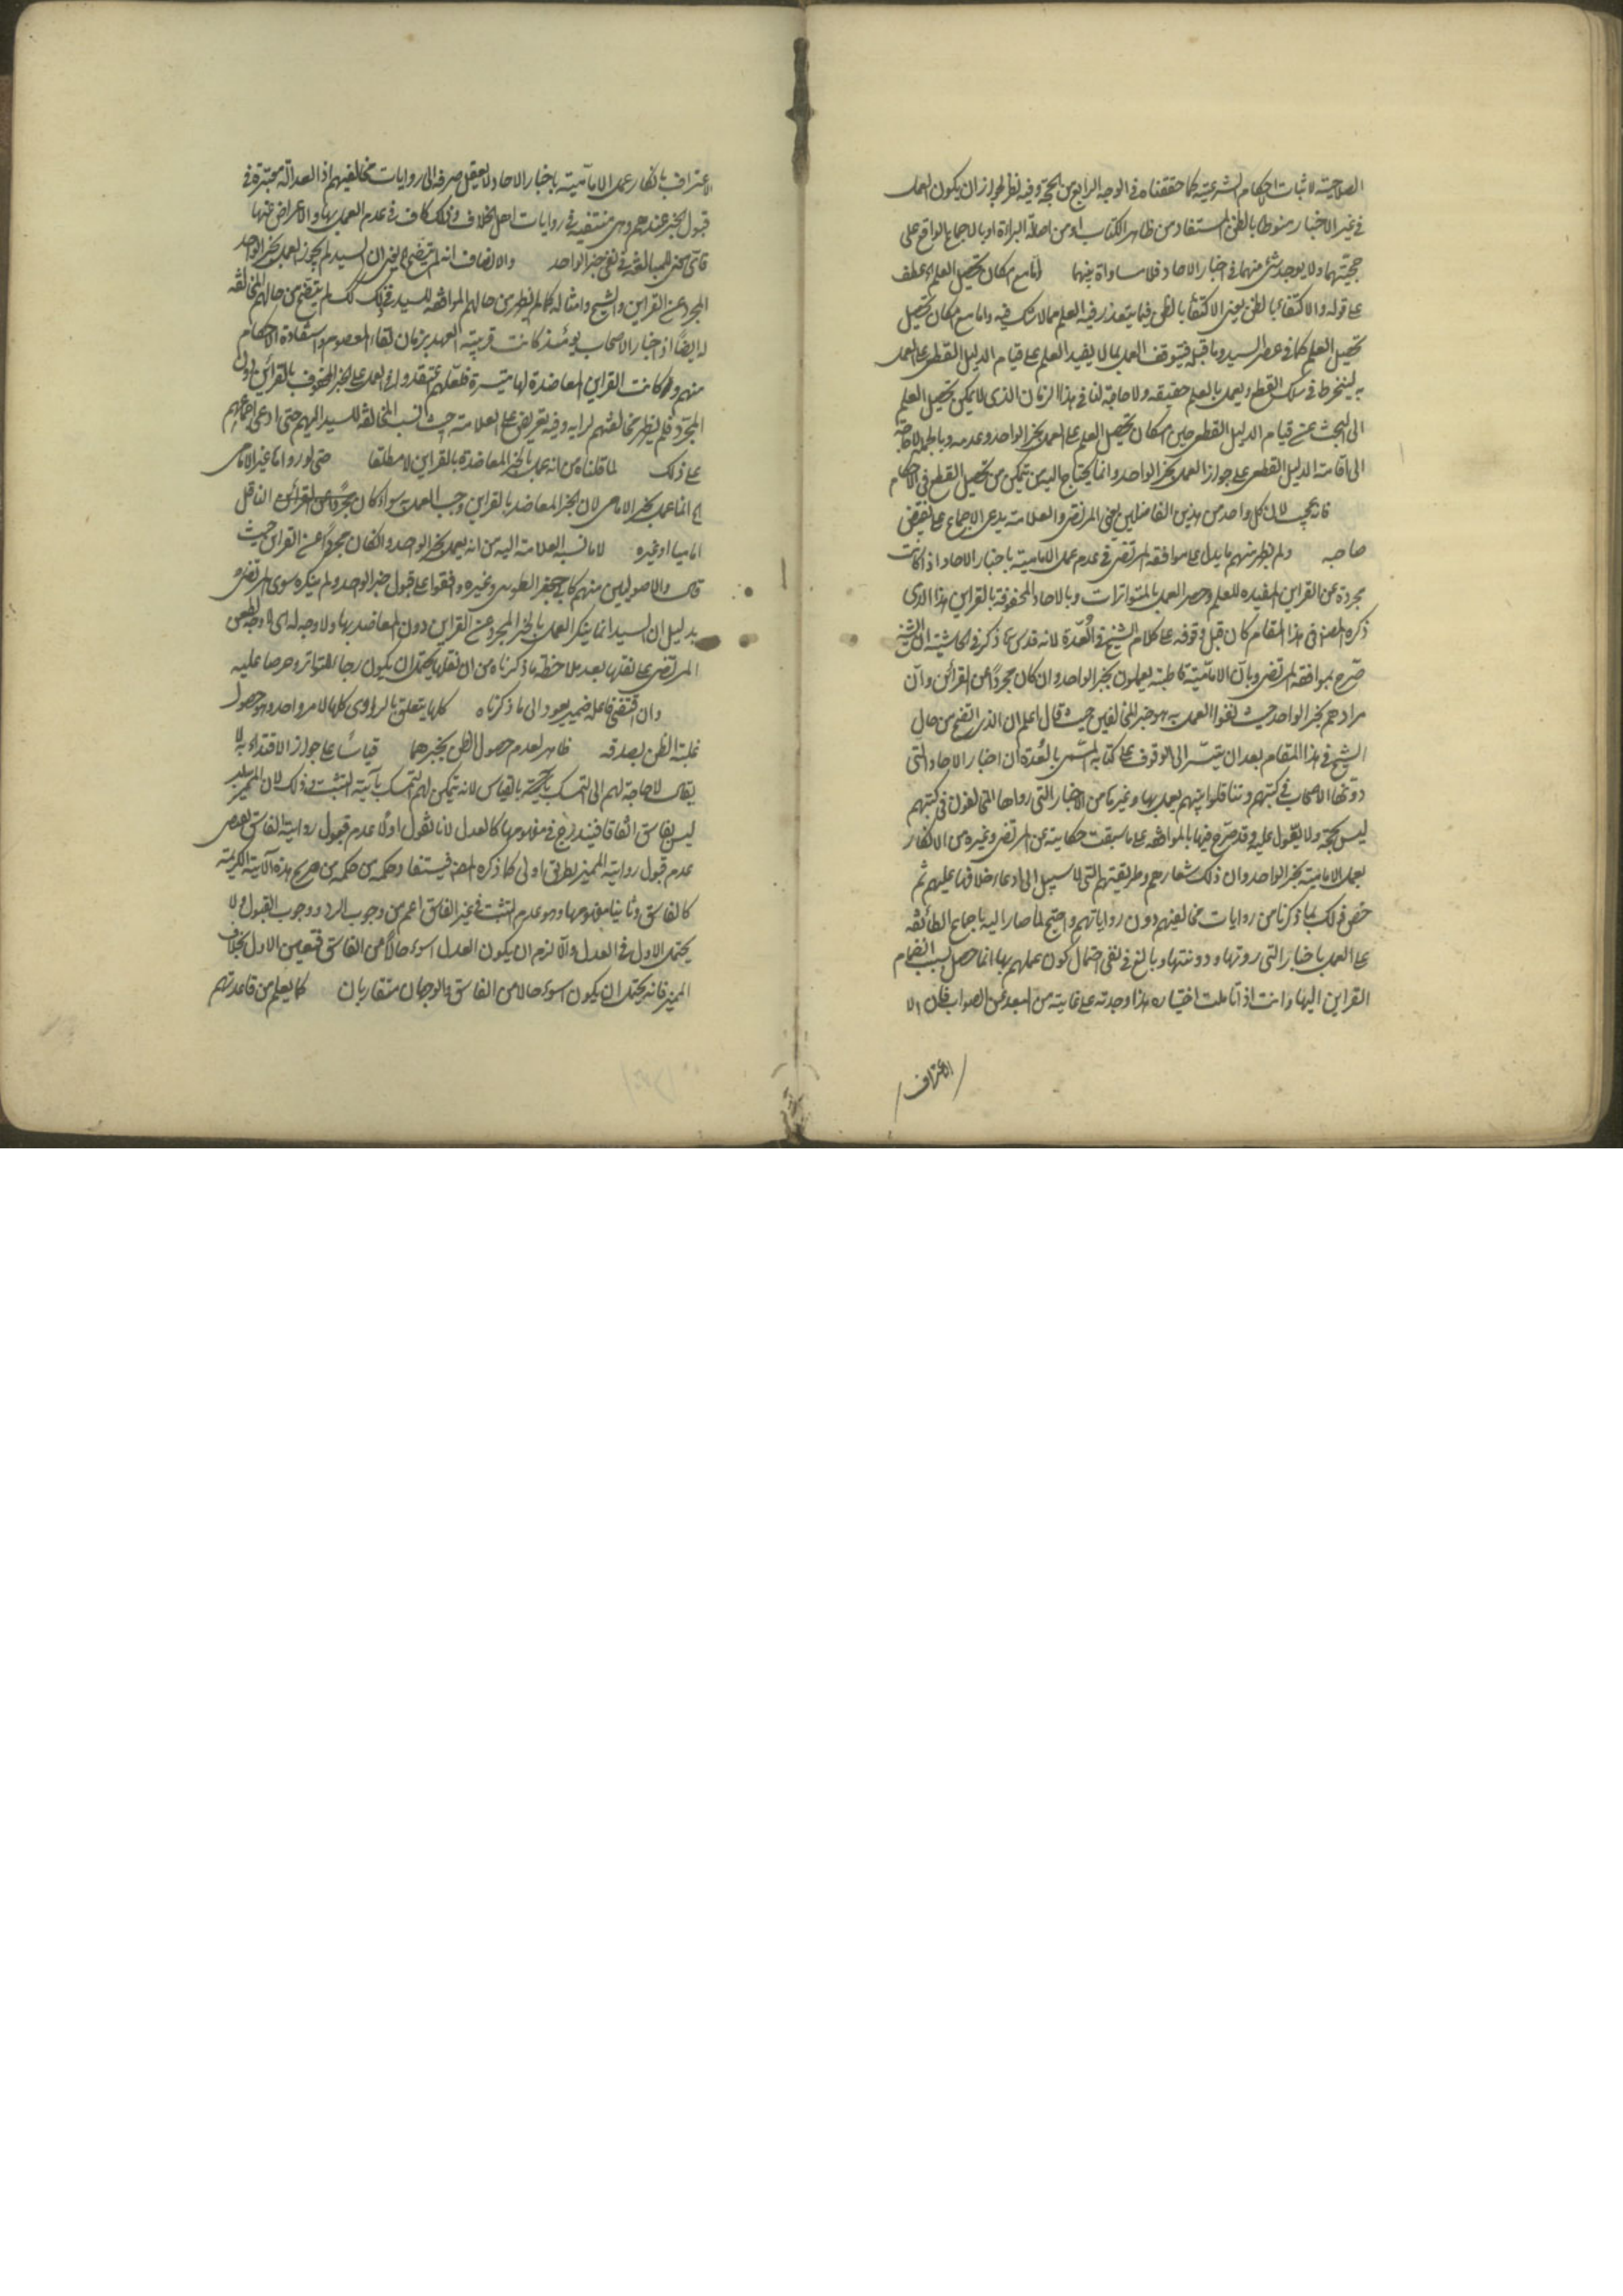 الصلاحية لاثبات الاحكام الشرعية كما حققناه في الوجه الرابع من الحجة وفيه نظر لجواز ان يكون العمل
في غير الاخبار منوطا بالظن المستفاد من ظاهر الكتاب او من اصالة البراءة او بالاجماع الواقع على
حجيتهما ولا يوجد شئ منهما في اخبار الاحاد فلا مساواة بينهما اما مع امكان تحصيل العلم عطف
على قوله والاكتفاء بالظن يعني الاكتفاء بالظن فيما يتعذر فيه العلم مما لا شك فيه واما مع امكان تحصيل
تحصيل العلم كما في عصر السيد وما قبله فيتوقف العمل بما لا يفيد العلم على قيام الدليل القطعي على العمل
به لينخرط في سلك القطع ويعمل بالعلم حقيقة ولا حاجة لنا في هذا الزمان الذي لا يمكن تحصيل العلم
الى البحث عن قيام الدليل القطعي حين امكان تحصيل العلم على العمل بخبر الواحد وعدمه وبالجملة لا حاجة
الى اقامة الدليل القطعي على جواز العمل بخبر الواحد وانما يحتاج اليه من يتمكن من تحصيل القطع في الاحكام
فانه عجيب لان كل واحد من هذين الفاضلين يعني المرتضى والعلامة يدعي الاجماع على نقيض
صاحبه ولم يظهر منهم ما يدل على موافقة المرتضى في عدم عمل الامامية باخبار الاحاد اذا كانت
مجردة عن القراين المفيدة للعلم وحصر العمل بالمتواترات وبالاحاد المحفوفة بالقراين هذا الذي
ذكره المصنف في هذا المقام كان قبل وقوفه على كلام الشيخ في العدة لانه قدس سره ذكر في الحاشية ان الشيخ
صرح بموافقة المرتضى وبان الامامية قاطبة يعملون بخبر الواحد وان كان مجردا عن القرائن وان
مرادهم بخبر الواحد حيث نفوا العمل به هو خبر المخالفين حيث قال اعلم ان الذي اتضح من حال
الشيخ في هذا المقام بعد ان يتيسر الى الوقوف على كتابه المسمى بالعدة ان اخبار الاحاد التي
دونها الاصحاب في كتبهم وتناقلوا بينهم يعمل بها وغيرها من الاخبار التي رواها المخالفون في كتبهم
ليس بحجة ولا يعول عليه وقد صرح فيها بالموافقة على ما سبقت حكايته عن المرتضى وغيره من الانكار
بعمل الامامية بخبر الواحد وان ذلك شعارهم وطريقتهم التي لا سبيل الى ادعاء خلافها عليهم ثم
خص ذلك بما ذكرنا من روايات مخالفيهم دون رواياتهم واحتج لما صار اليه باجماع الطائفة
على العمل باخبار التي روتها ودونتها وبالغ في نفي احتمال كون عملهم بها انما حصل بسبب انضمام
القراين اليها وانت اذا تاملت اختياره هذا وجدته على غاية من البعد عن الصواب فان الا
الاعتراف
الاعتراف بانكار عمل الامامية باخبار الاحاد لا يعقل صرفه الى روايات مخالفيهم اذ العدالة معتبرة في
قبول الخبر عندهم وهي منتفية في روايات اهل الخلاف وذلك كاف في عدم العمل بها والاعراض عنها
فاتى معنى للمبالغة في نفي خبر الواحد والانصاف انه لم يتضح الخ يعني ان السيد لم يجوز العمل بخبر الواحد
المجرد عن القراين والشيخ وامثاله كما لم يظهر من حالهم الموافقة للسيد في ذلك كك لم يتضح من حالهم المخالفة
له ايضا اذ اخبار الاصحاب يومئذ كانت قريبة العهد بزمان لقاء المعصوم واستفادة الاحكام
منهم وكانت القراين المعاضدة لها متيسرة فلعلهم اعتقدوا في العمل على الخبر المحفوف بالقرائن لا ولى
المجرد فلم يظهر مخالفتهم لرايه وفيه تعريض على العلامة حيث نسب المخالفة للسيد اليهم حتى ادعى اجماعهم
على ذلك لما قلناه من انه عمل بالخبر المعاضدة بالقراين لا مطلقا حتى لو رواها غير الامامي
اي انما عمل بخبر الامامي لان الخبر المعاضد بالقراين وجب العمل به سواء كان الناقل
اماميا او غيره لا ما نسبه العلامة اليه من انه يعمل بخبر الواحد وان كان مجردا عن القراين حيث
قال والاصوليين منهم كابي جعفر الطوسي وغيره وافقوا على قبول خبر الواحد ولم ينكره سوى المرتضى
بدليل ان السيد انما ينكر العمل بالخبر المجرد عن القراين دون المعاضد بها ولا وجه له اي لا وجه لطعن
المرتضى على نقلها بعد ملاحظة ما ذكرناه من ان نقلها يحتمل ان يكون رجاء للتواتر وحرصا عليه
وان اقتضى فاعله ضمير يعود الى ما ذكرناه كلها يتعلق بالراوي كلها لامر واحد وهو حصول
غلبة الظن بصدقه ظاهر لعدم حصول الظن بخبرهما قياسا على جواز الاقتداء به لا
يقال لا حاجة لهم الى التمسك بالقياس لانه يمكن لهم التمسك بآية التثبت وذلك لان المميز
ليس بفاسق اتفاقا فيندرج في مفهومها كالعدل لانا نقول اولا عدم قبول رواية الفاسق يقتضي
عدم قبول رواية المميز بطريق اولى كما ذكره المصنف فيستفاد حكمه من حكمه من صريح هذه الآية الكريمة
كالفاسق وثانيا مفهومها وهو عدم التثبت في غير الفاسق اعم من وجوب الرد ووجوب القبول ولا
يحتمل الاول في العدل والا لزم ان يكون العدل اسوء حالا من الفاسق فتعين الاول بخلاف
المميز فانه يحتمل ان يكون اسوء حالا من الفاسق والوجهان متقاربان كما يعلم من قاعدتهم